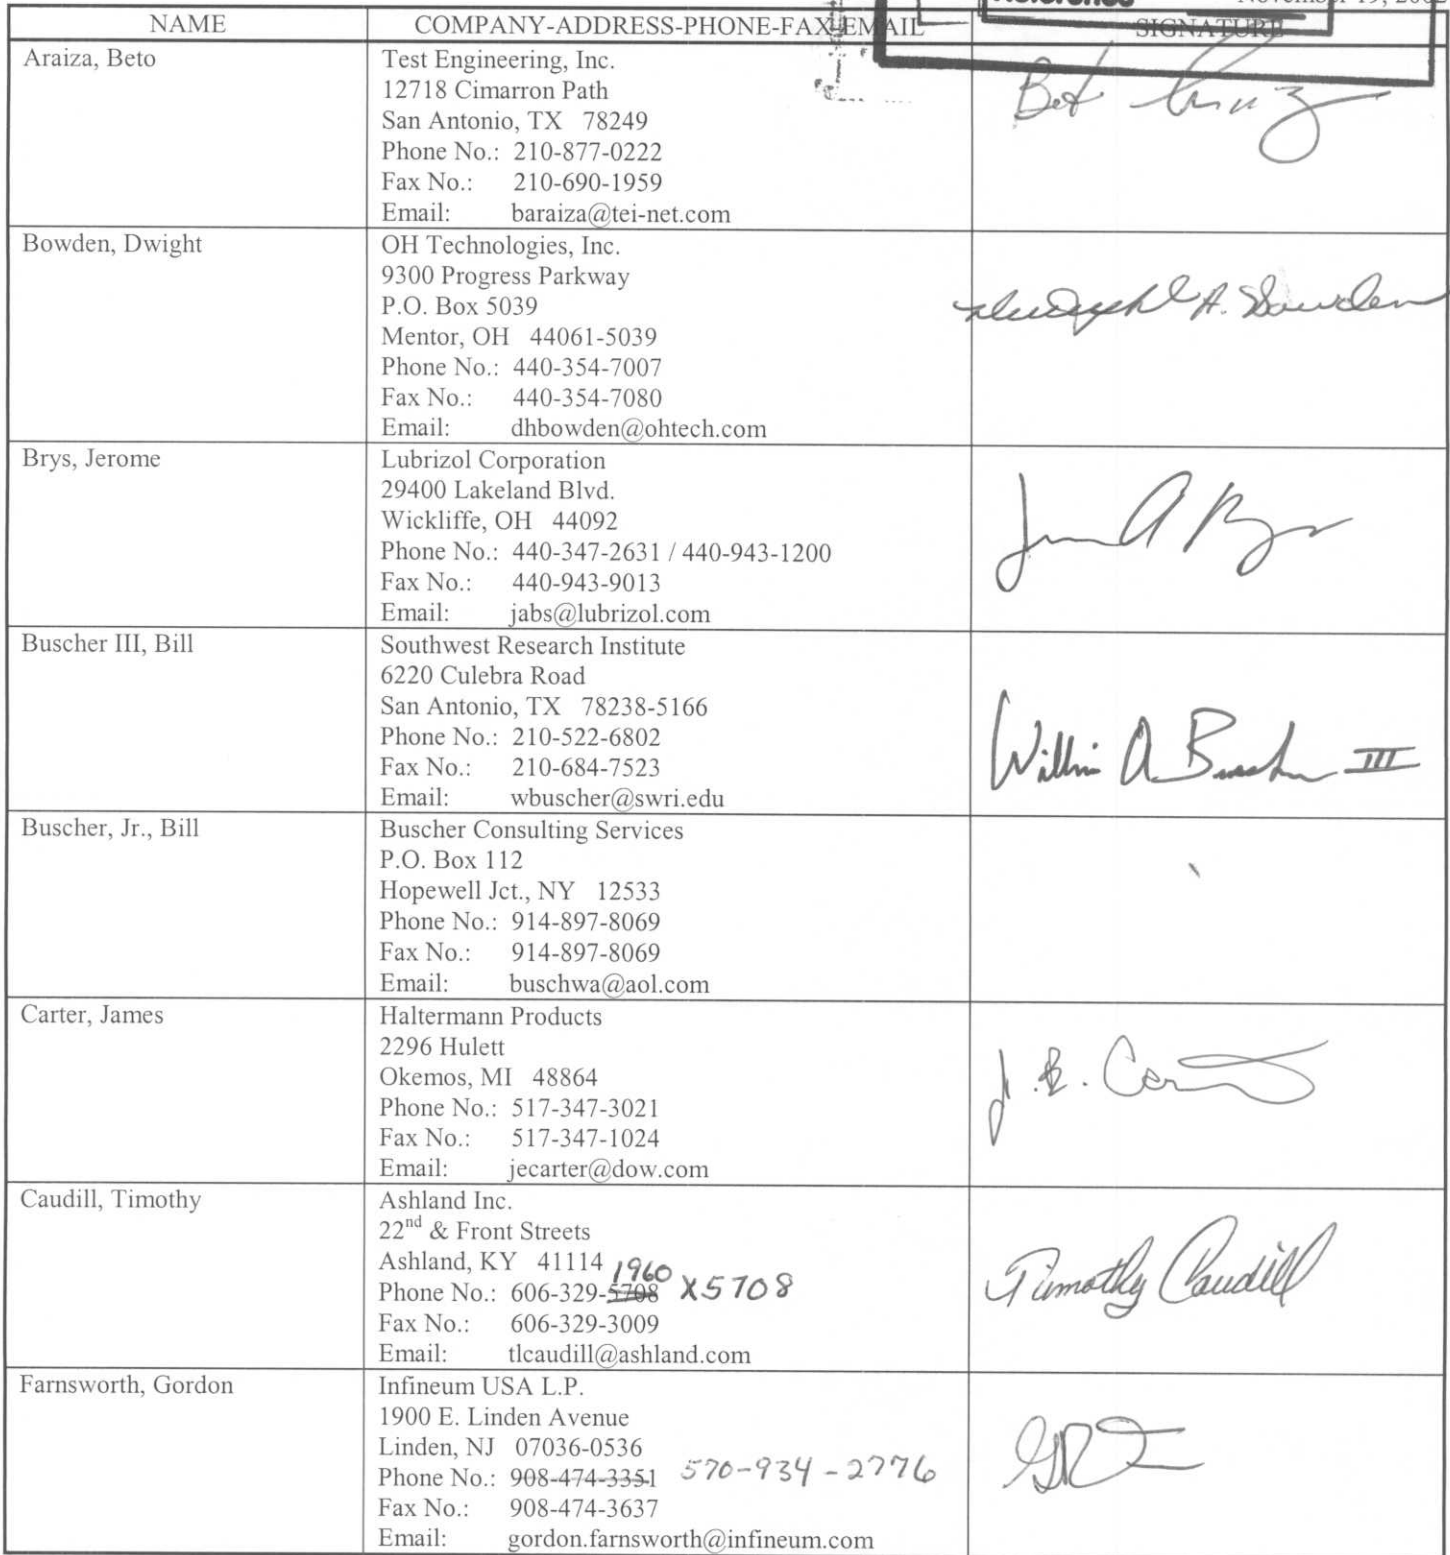 Reference November 19, 2002
NAME COMPANY-ADDRESS-PHONE-FAX-EMAIL SIGNATURE
Araiza, Beto
Test Engineering, Inc.
12718 Cimarron Path
San Antonio, TX 78249
Phone No.: 210-877-0222
Fax No.: 210-690-1959
Email: baraiza@tei-net.com
Bowden, Dwight
OH Technologies, Inc.
9300 Progress Parkway
P.O. Box 5039
Mentor, OH 44061-5039
Phone No.: 440-354-7007
Fax No.: 440-354-7080
Email: dhbowden@ohtech.com
Brys, Jerome
Lubrizol Corporation
29400 Lakeland Blvd.
Wickliffe, OH 44092
Phone No.: 440-347-2631 / 440-943-1200
Fax No.: 440-943-9013
Email: jabs@lubrizol.com
Buscher III, Bill
Southwest Research Institute
6220 Culebra Road
San Antonio, TX 78238-5166
Phone No.: 210-522-6802
Fax No.: 210-684-7523
Email: wbuscher@swri.edu
William A Buscher III
Buscher, Jr., Bill
Buscher Consulting Services
P.O. Box 112
Hopewell Jct., NY 12533
Phone No.: 914-897-8069
Fax No.: 914-897-8069
Email: buschwa@aol.com
Carter, James
Haltermann Products
2296 Hulett
Okemos, MI 48864
Phone No.: 517-347-3021
Fax No.: 517-347-1024
Email: jecarter@dow.com
Caudill, Timothy
Ashland Inc.
22nd & Front Streets
Ashland, KY 41114
Phone No.: 606-329-5708 1960 X5708
Fax No.: 606-329-3009
Email: tlcaudill@ashland.com
Timothy Caudill
Farnsworth, Gordon
Infineum USA L.P.
1900 E. Linden Avenue
Linden, NJ 07036-0536
Phone No.: 908-474-3351 570-934-2776
Fax No.: 908-474-3637
Email: gordon.farnsworth@infineum.com